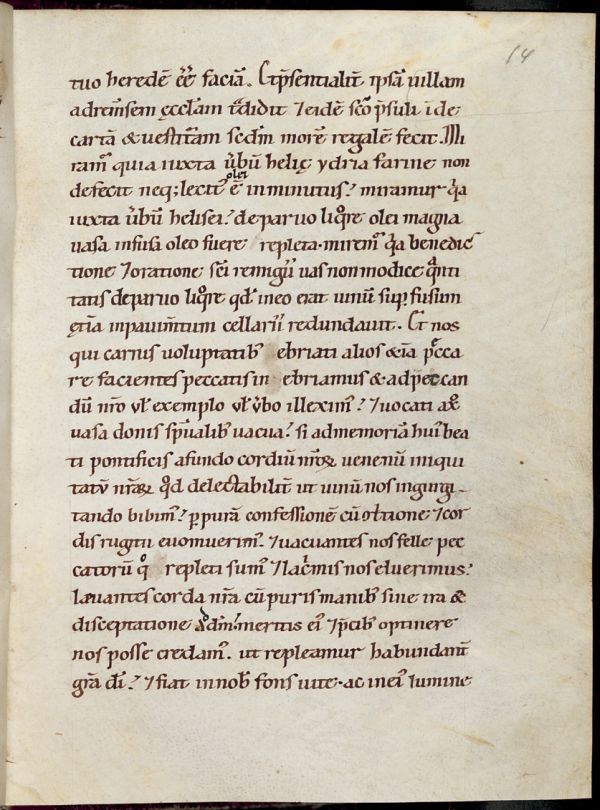 14
tuo heredē eē̄ faciā. Et p̄sentialit̄ ipsā uillam
ad remsem ęccl̄am t̄didit ⁊ eidē sc̄o p̄suli īde
cartā & uestit̄am sc̄dm̄ morē regalē fecit. Mi
ramˀ quia iuxta ūbū helię ydria farine non
defecit neq; lecitˀ olei ē inminutus? miramur qͥa
iuxta ūbū helisei? de paruo liqͦre olei magna
uasa infusa oleo fuere repleta. miremˀ qͥa benedic
tione ⁊ oratione sc̄i remigii uas non modice qͣnti
tatis de paruo liqͦre qd̄ in eo erat uinū sup̄fusum
ętiā in pauim̄tum cellarii redundauit. Et nos
qui carnis uoluptatib; ebriati alios &iā pecca
re facientes peccatis inebriamus & ad peccan
dū nr̄o ul̄ exemplo ul̄ ūbo illeximˀ? ⁊ uocati
uasa donis sp̄ualib; uacua? si ad memoriā huiˀ bea
ti pontificis a fundo cordiū nr̄oꝝ uenenū iniqui
tatū nr̄aꝝ qd̄ delectabilit̄ ut uinū nos ingurgi
tando bibimˀ? p̱ purā confessionē cū ⁊ cor
dis rugitu euomuerimˀ. ⁊ uacuantes nos felle pec
catorū qͦ repleti sumˀ ⁊ lacͥmis nos eluerimus?
lauantes corda nr̄a cū puris manib; sine ira &
disceptatione ad dn̄m? meritis eiˀ ⁊ p̄cib; optinere
nos posse credamˀ. ut repleamur habundant̄
gr̄a dī? ⁊ fiat in nob̄ fons uite. ac in eiˀ lumine